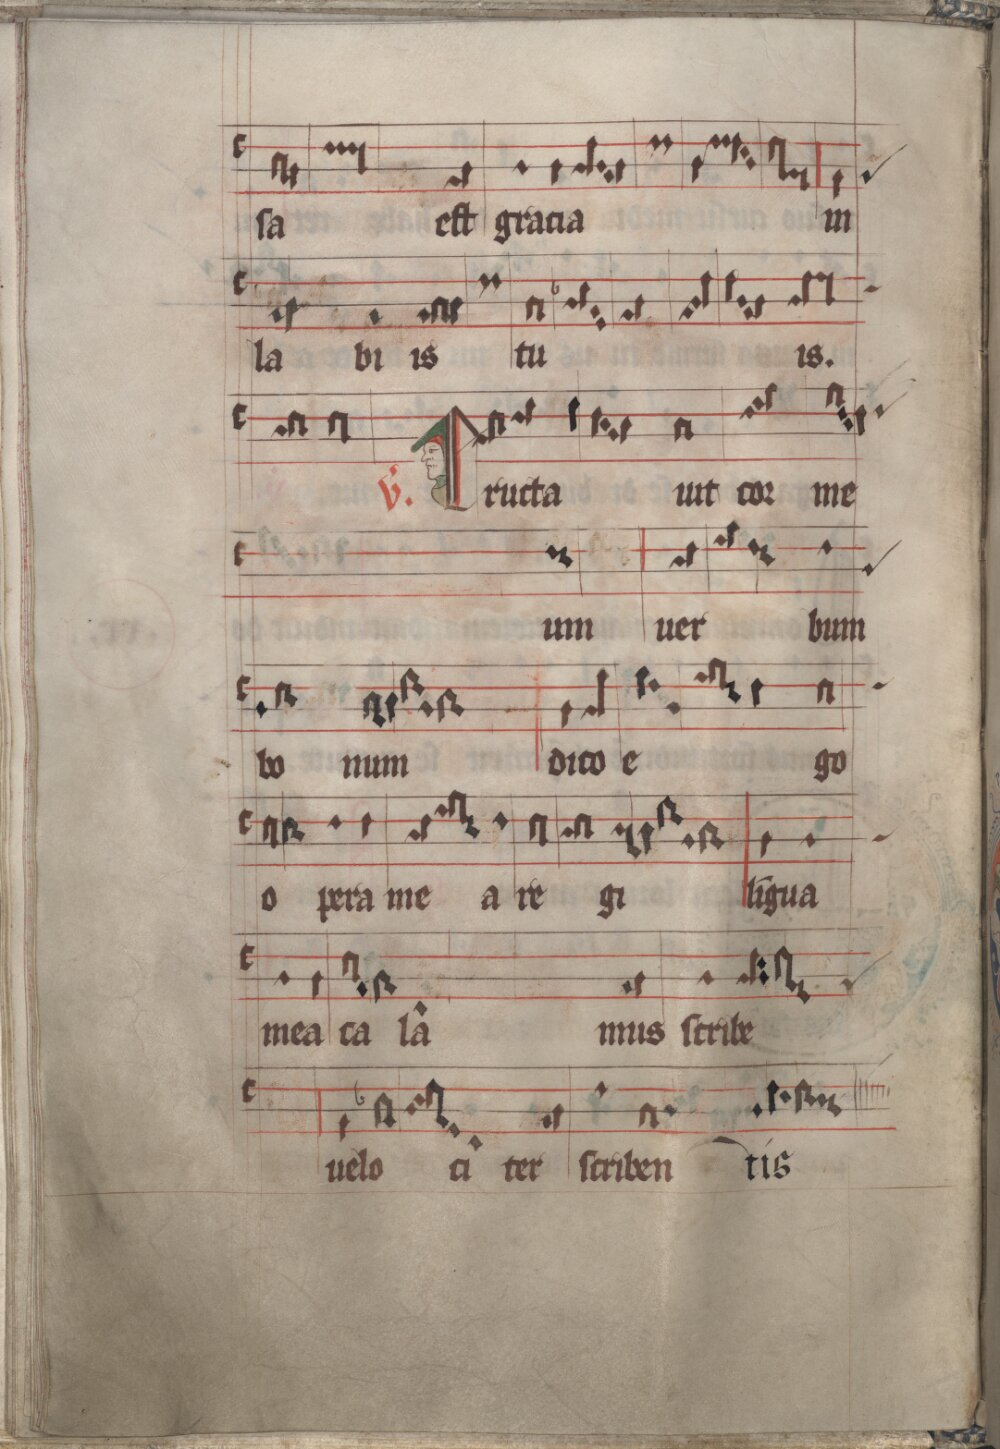 sa est gracia in
la bi is tu is.
V. Eructa uit cor me
um uer bum
bo num dico e go
o pera me a re gi līgua
mea ca la mus scribe
uelo ci ter scriben tis